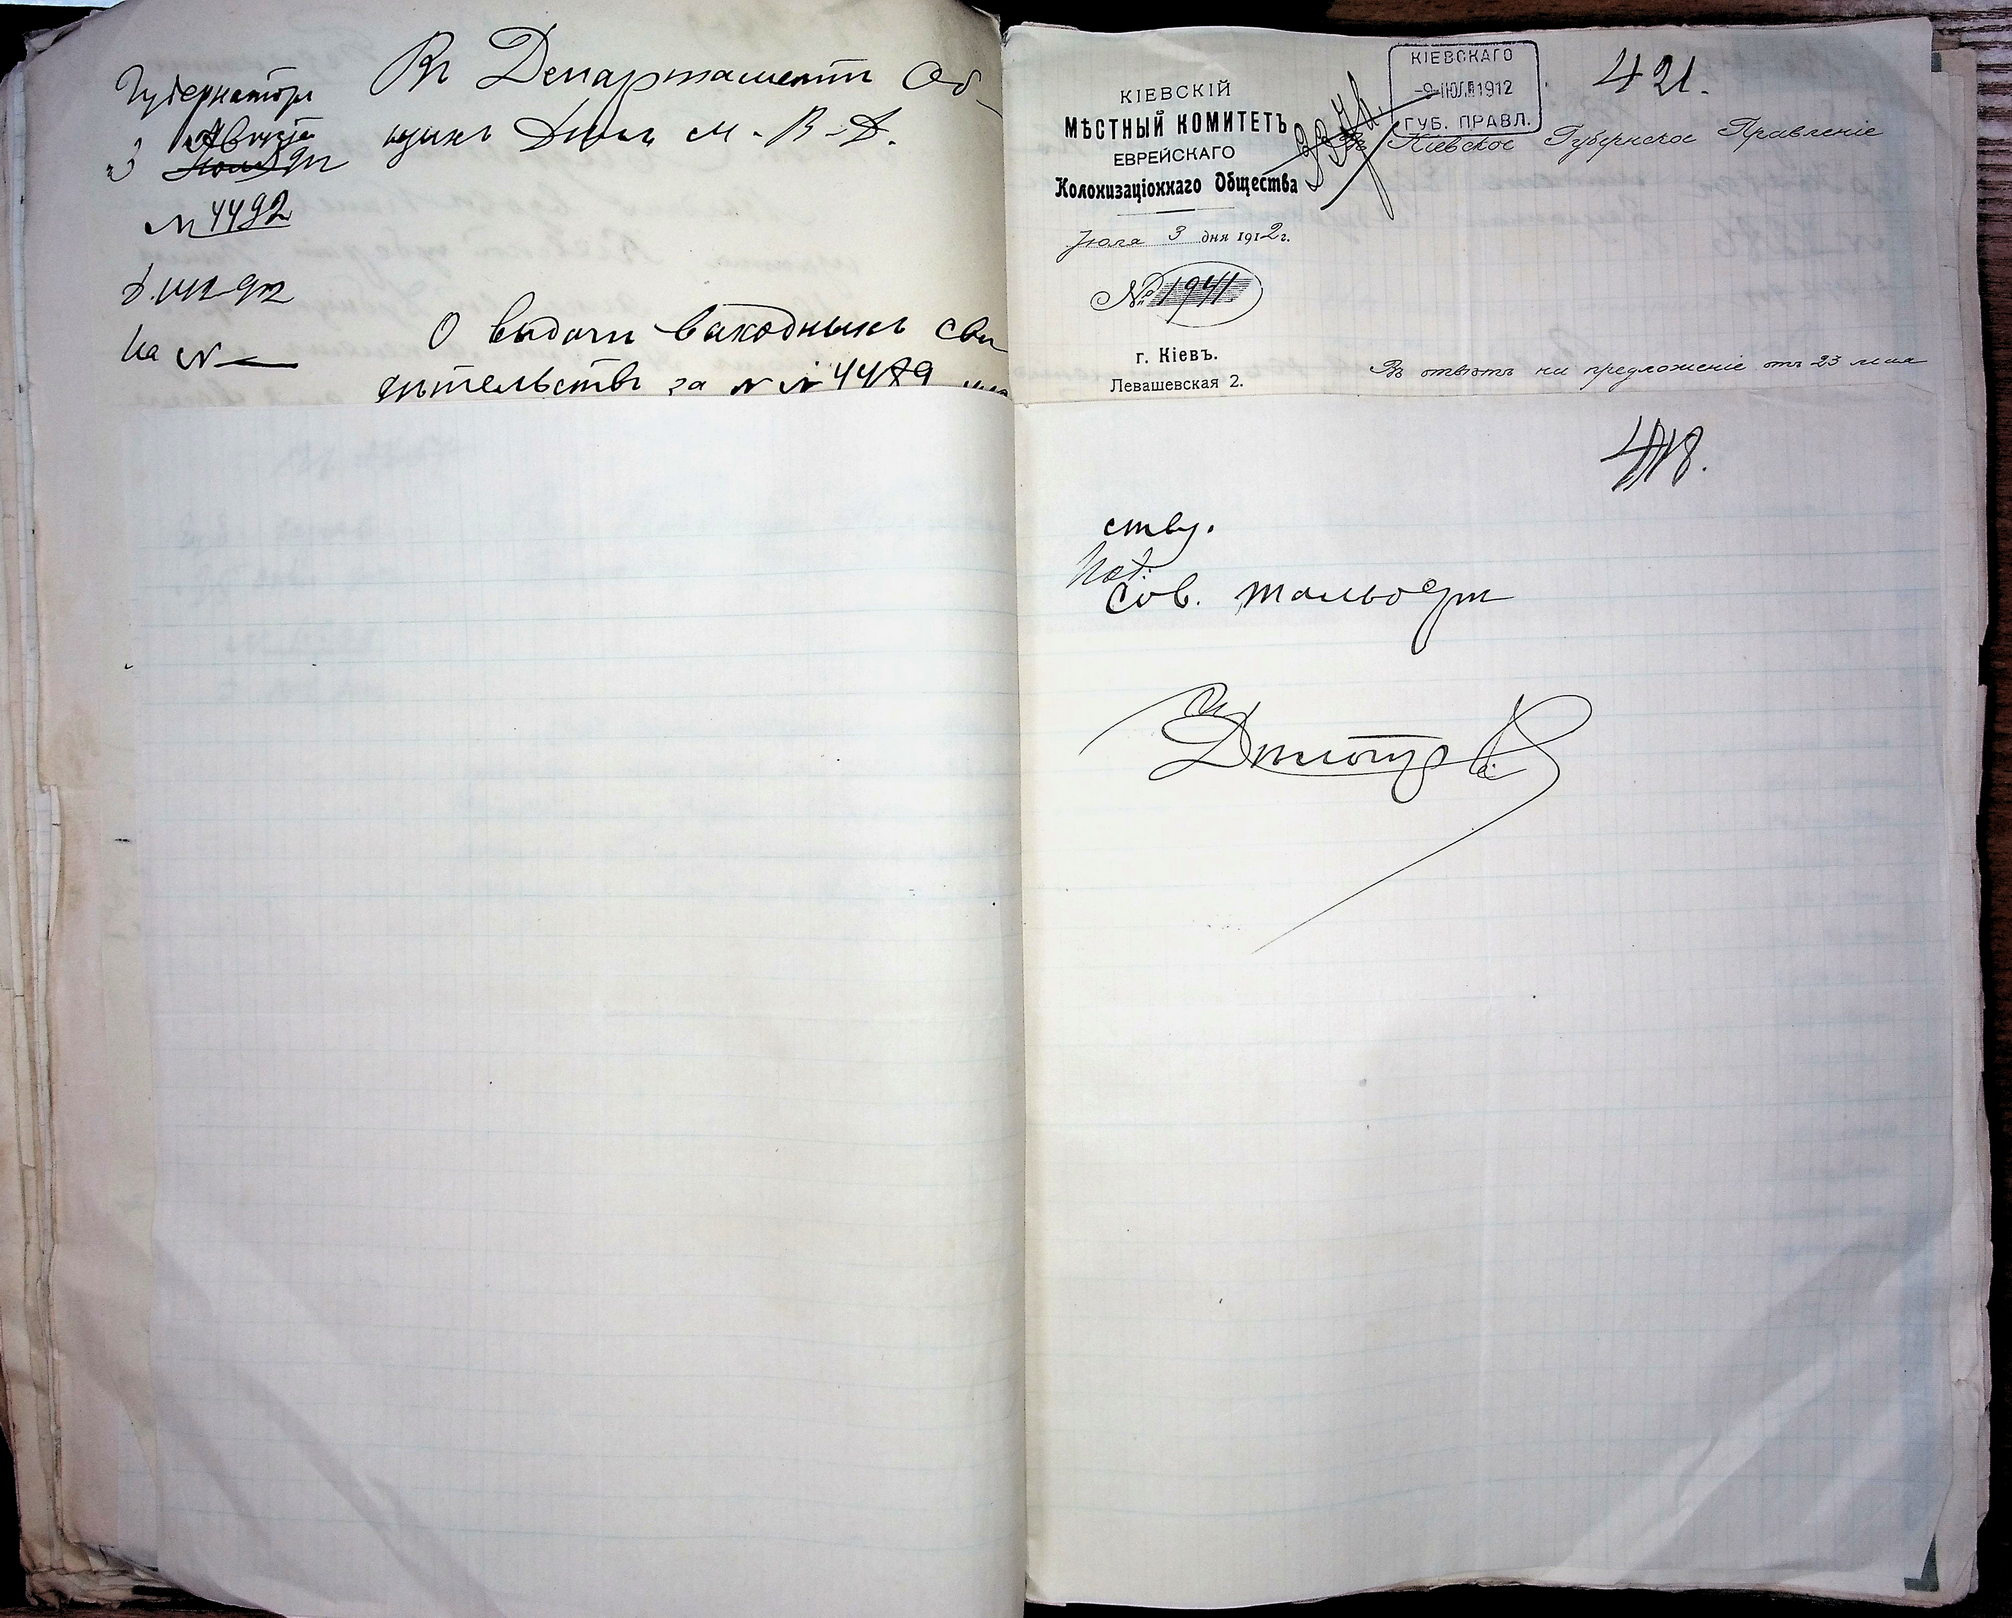 Губернаторъ
3 Августа
Іюля 912
№ 4492
На №
Въ Департаментъ Об-
щихъ Дѣлъ М-В-Д.
О выдачи выходныхъ сви
дѣтельствъ за №№ 4489
КІЕВСКІЙ
МѢСТНЫЙ КОМИТЕТЪ
ЕВРЕЙСКАГО
Колонизаціоннаго Общества
Іюля 3 дня 1912 г.
№ 1941
г. Кіевъ.
Левашевская 2.
КІЕВСКАГО
-9 ІЮЛЯ 1912
ГУБ. ПРАВЛ.
421.
Въ Кіевское Губернское Правленіе
Въ отвѣтъ на предложеніе отъ 23 мая
418.
ству.
Сов.